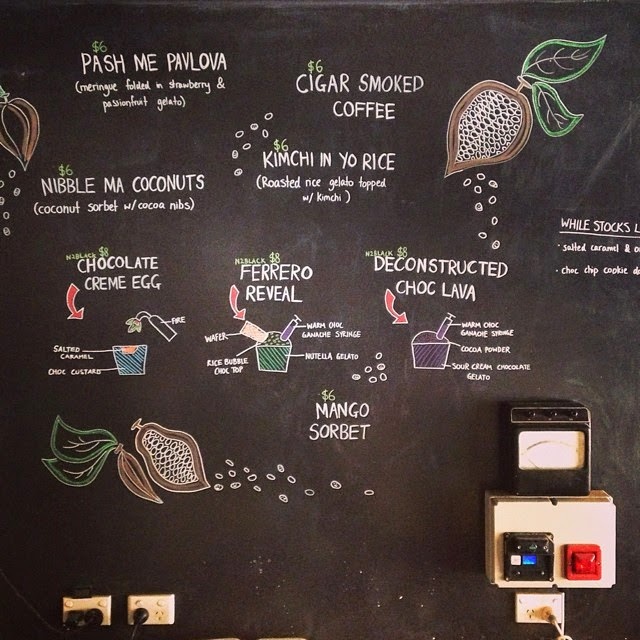 $6
PASH ME PAVLOVA
(meringue folded in strawberry &
passionfruit gelato)
$6
CIGAR SMOKED
COFFEE
$6
KIMCHI IN YO RICE
(Roasted rice gelato topped
w/ kimchi)
$6
NIBBLE MA COCONUTS
(coconut sorbet w/cocoa nibs)
WHILE STOCKS L
· salted caramel &
· choc chip cookie
N2BLACK $8
CHOCOLATE
CREME EGG
FIRE
SALTED
CARAMEL
CHOC CUSTARD
N2BLACK $8
FERRERO
REVEAL
WAFER
WARM CHOC
GANACHE SYRINGE
RICE BUBBLE
CHOC TOP
NUTELLA GELATO
N2BLACK $8
DECONSTRUCTED
CHOC LAVA
WARM CHOC
GANACHE SYRINGE
COCOA POWDER
SOUR CREAM CHOCOLATE
GELATO
$6
MANGO
SORBET